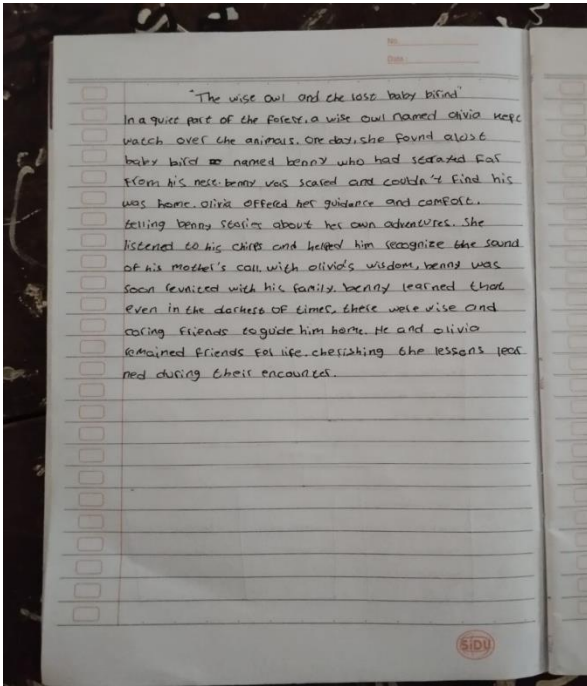 No.
Date :
"The wise owl and the lost baby birind"
In a quiet part of the forest, a wise owl named olivia kept
watch over the animals. One day, she found a lost
baby bird named benny who had strayed far
from his nest. benny was scared and couldn't find his
was home. Olivia offered her guidance and comfort.
telling benny stories about her own adventures. She
listened to his chirps and helped him recognize the sound
of his mother's call. with olivia's wisdom, benny was
soon reunited with his family. benny learned that
even in the darkest of times, there were wise and
caring friends to guide him home. He and olivia
remained friends for life. cherishing the lessons lear
ned during their encounter.
SIDU